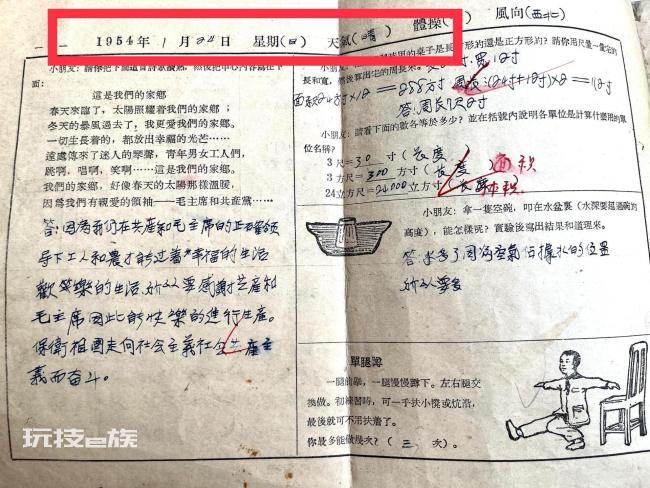 1954年 1月24日 星期(日) 天氣(晴) 體操( ) 風向(西北)
面:
這是我們的家鄉
春天來臨了,太陽照耀着我們的家鄉;
冬天的暴風過去了,我更愛我們的家鄉。
一切生長着的,都放出幸福的光芒……
遠處傳來了迷人的琴聲,青年男女工人們,
跳啊,唱啊,笑啊……
我們的家鄉,好像春天的太陽那樣溫暖,
因爲我們有親愛的領袖——毛主席和共産黨……
答:因為我们在共産和毛主席的正確領
导下工人和農才能过着幸福的生活
歡笑樂的生活,所以要感謝共產和
毛主席因此的快樂的進行生産。
保衛祖國走向社会主義社会共産主
義而奋斗。
桌子是長方形約還是正方形約?請你用尺量一量它的
長和寬,然後算出它的周長來。
答:周長7尺2寸
小朋友:請看下面的數各等於多少?並在括號內說明各單位是計算什麼用的單
位名稱?
3尺=30寸(長度)
3方尺=300方寸(長度)面积
24立方尺=24000立方寸(長厚)体积
小朋友:拿一隻空碗,叩在水盆裏(水深要超過碗的
高度),能怎樣呢?實驗後寫出結果和道理來。
答:水多了因為空氣佔據水的位置
所以要多
單腿蹲
一腿前舉,一腿慢慢蹲下。左右腿交
換做。初練習時,可一手扶小櫈或炕沿,
最後就可不用扶着了。
你最多能做幾次?( 三 次)。
玩技e族